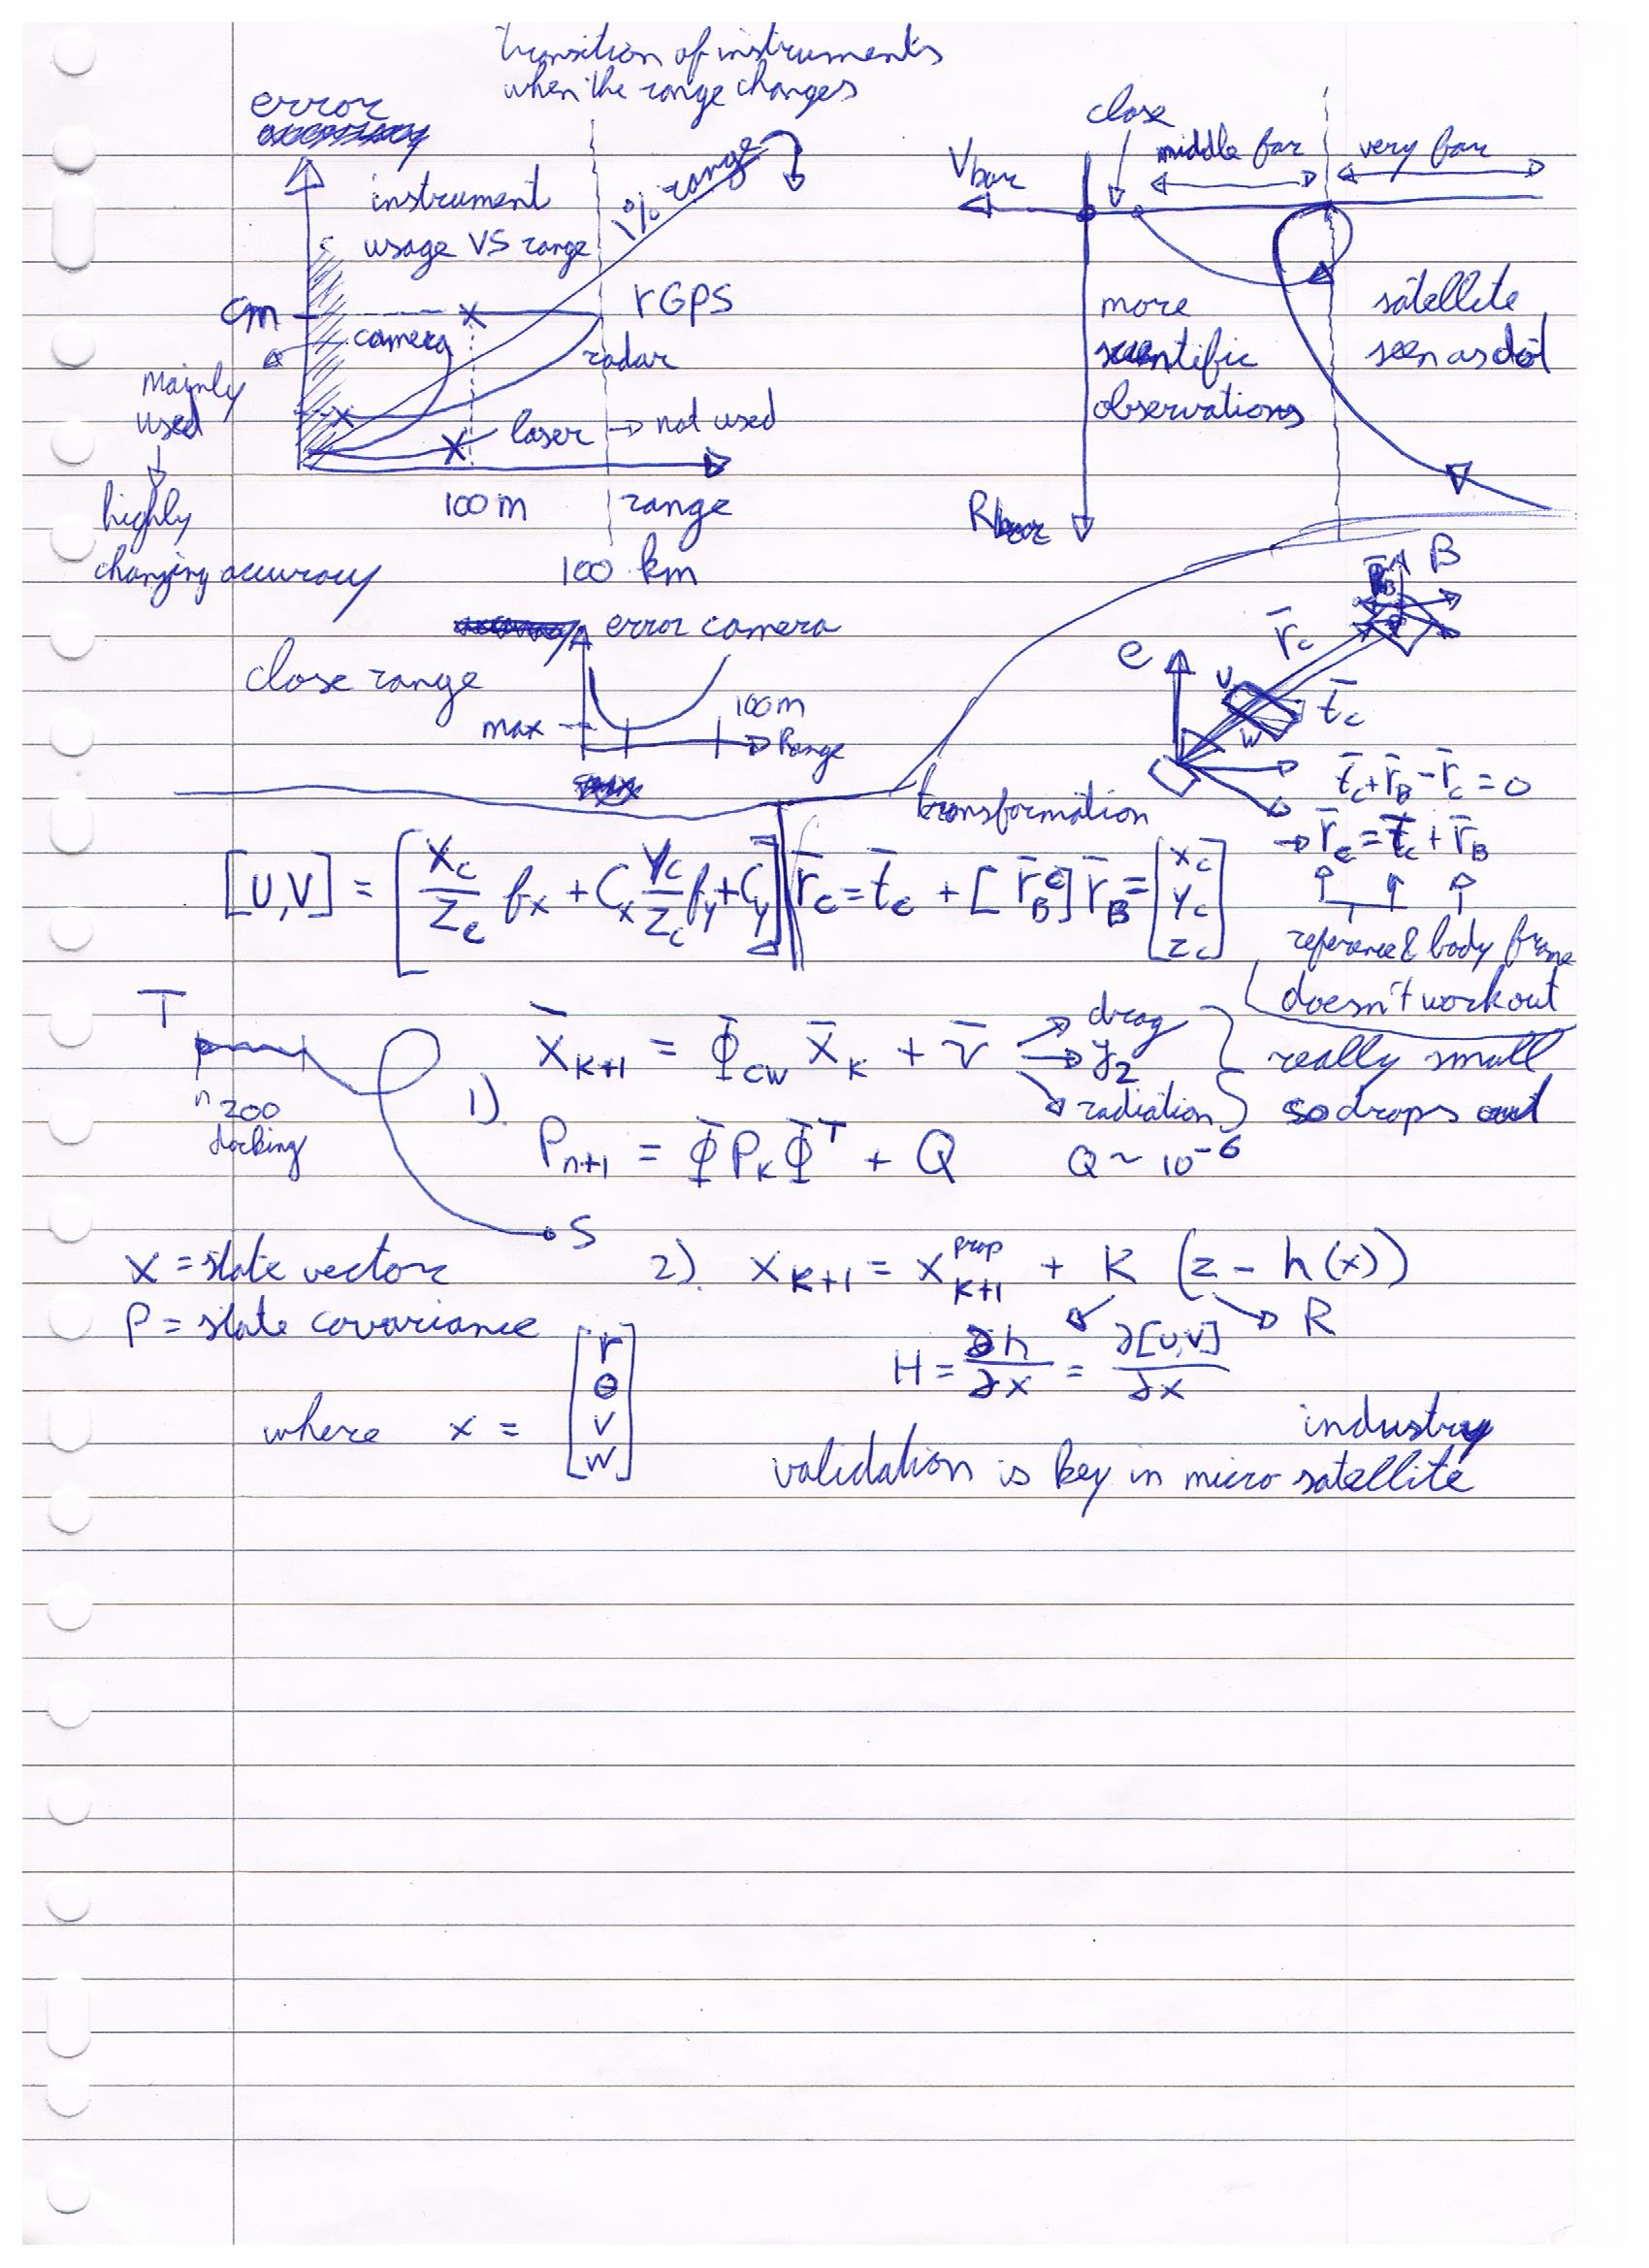 transition of instruments
when the range changes
error
instrument
usage VS range
1% range
cm
rGPS
camera
radar
mainly
used
highly
changing accuracy
laser → not used
100 m
range
100 km
close
Vbar
middle far
very far
more
scientific
observations
satellite
seen as dot
Rbar
close range
error camera
max
100m
Range
B
e
r̄c
U
W
t̄c
t̄c + r̄B - r̄c = 0
→ r̄c = t̄c + r̄B
reference & body frame
doesn't workout
transformation
[U,V] = [Xc/Zc fx + Cx Yc/Zc fy + Cy]
r̄c = t̄c + [r̄B^c] r̄B = [xc yc zc]
T
200
docking
S
1).
X̄K+1 = Φ̄cw X̄K + v̄
drag
J2
radiation
really small
so drops out
Pn+1 = Φ̄ PK Φ̄^T + Q
Q ~ 10^-6
X = state vector
P = state covariance
where x = [r θ v w]
2). xK+1 = x^prop K+1 + K (z - h(x))
R
H = ∂h/∂x = ∂[U,V]/∂x
industry
validation is key in micro satellite